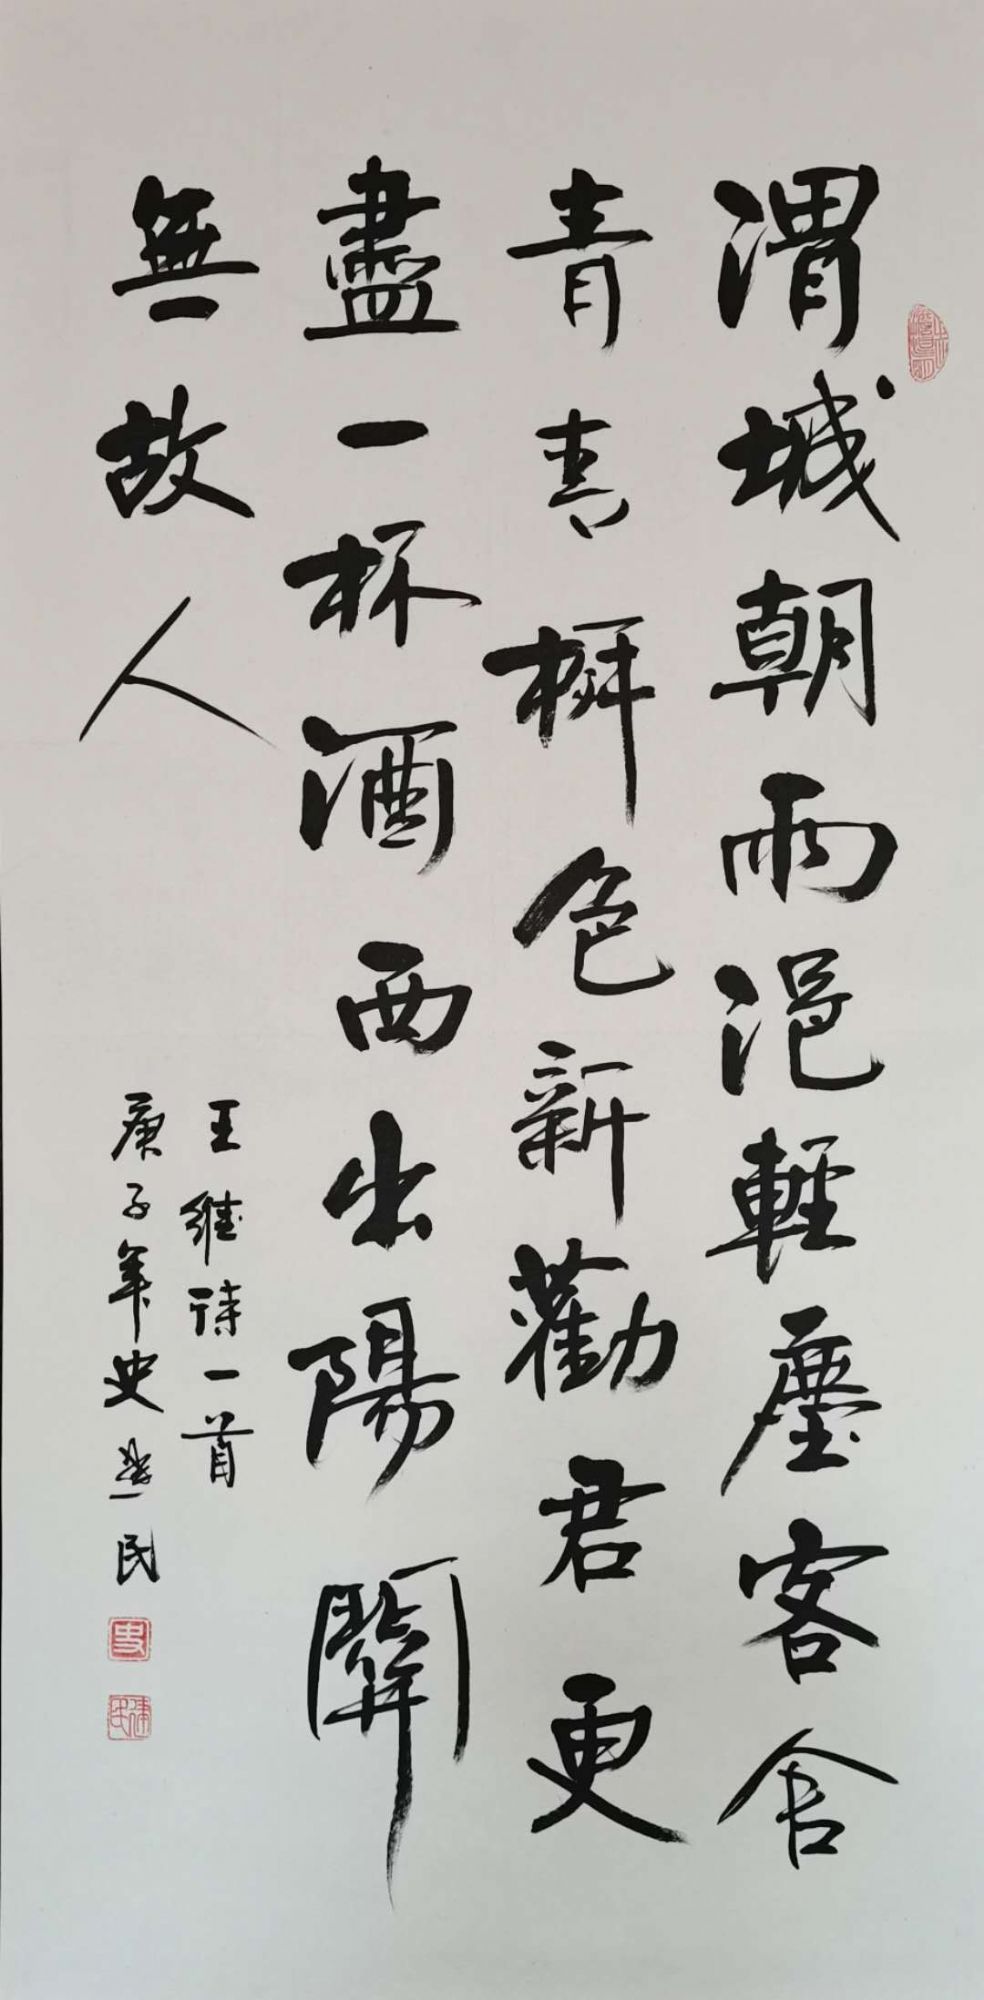 渭城朝雨浥輕塵客舍
青青柳色新勸君更
盡一杯酒西出陽關
無故人
王維詩一首
庚子年史建民
史
建民